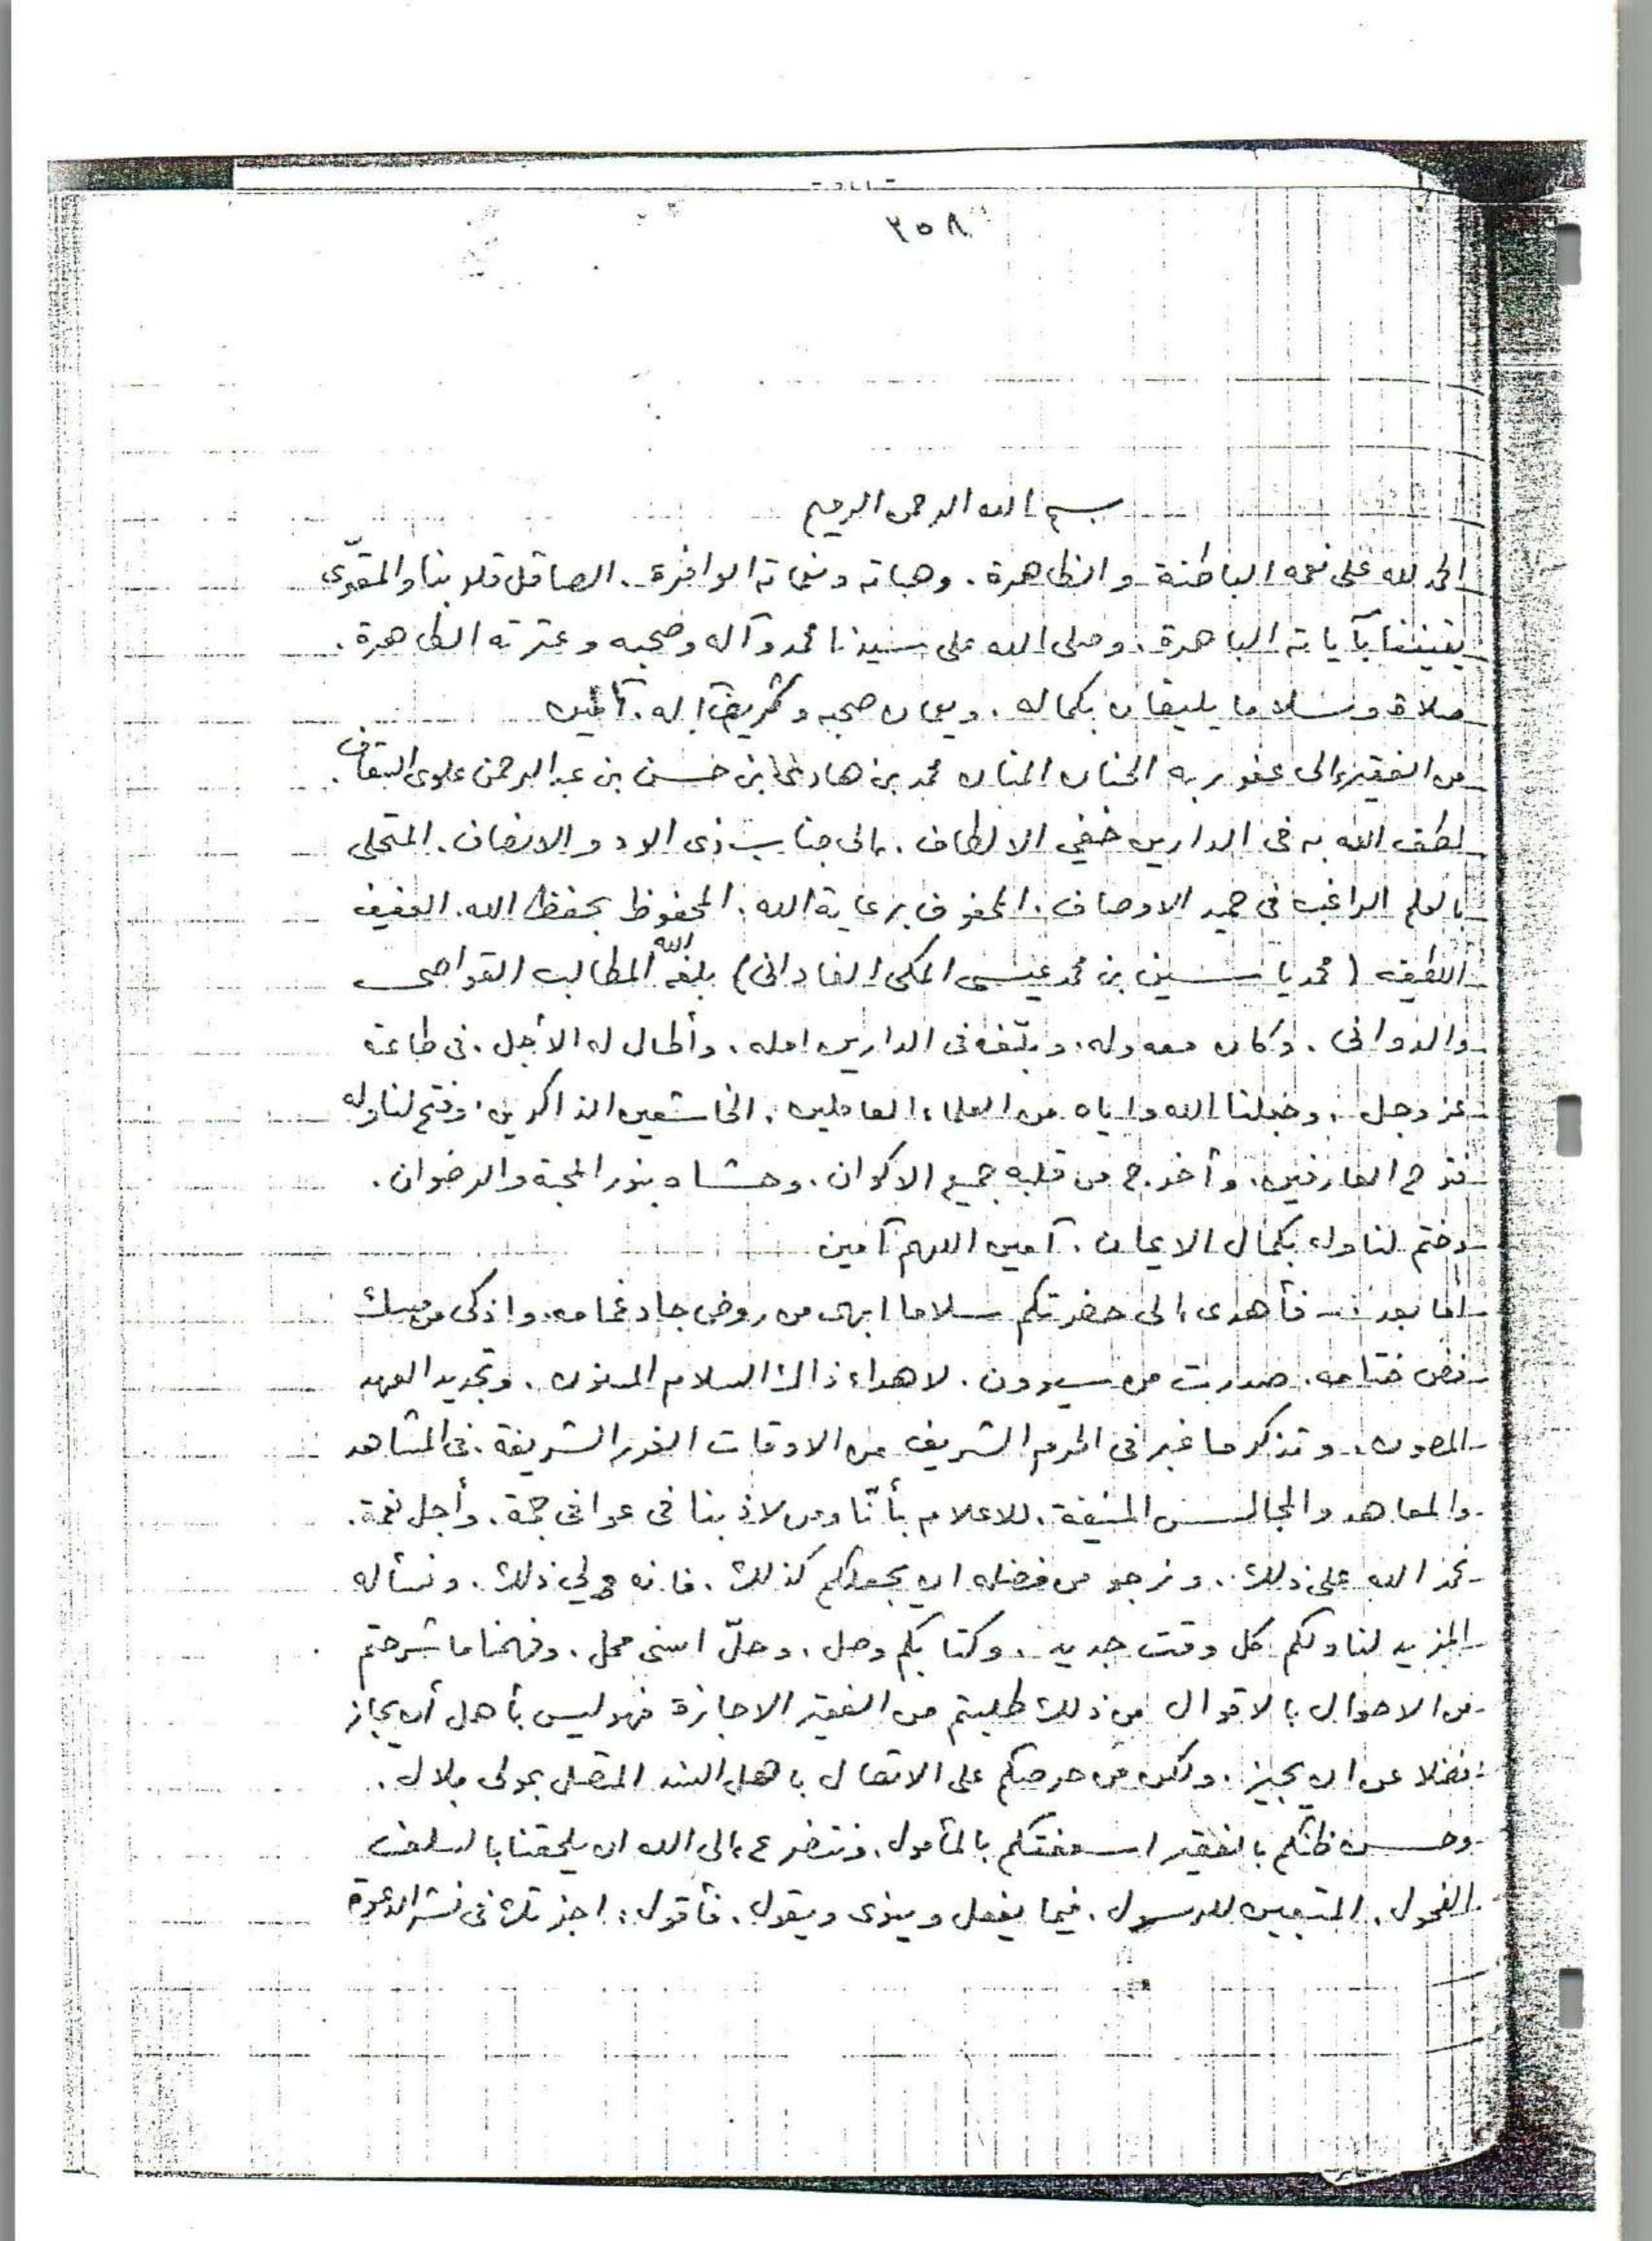 ٢٥٨
بسم الله الرحمن الرحيم
الحمد لله على نعمه الباطنة والظاهرة. وهباته ونغماته الوافرة. الصاقل قلوبنا والمقوّى
يقيننا بآياته الباهرة. وصلى الله على سيدنا محمد وآله وصحبه وعترته الطاهرة.
صلاة وسلاما يليقان بكماله. ويعمان صحبه وشريف آله. آمين
من الفقير إلى عفو ربه الحنان المنان محمد بن هادي بن حسن بن عبد الرحمن علوى السقاف.
لطف الله به فى الدارين خفي الالطاف. إلى جناب ذى الود والانصاف. المتحلى
بالعلم الراغب فى حميد الاوصاف. المحفوف برعاية الله. المحفوظ بحفظ الله. العفيف
اللطيف (محمد ياسين بن محمد عيسى المكى الفادانى) بلغه الله المطالب القواصى
والدوانى. وكان معه وله. وبلّغه فى الدارين امله. وأطال له الأجل. فى طاعة
عز وجل. وجعلنا الله واياه من العلماء العاملين. الخاشعين الذاكرين. وفتح لنا وله
فتوح العارفين. وأخرج من قلبه جميع الاكوان. وحشاه بنور المحبة والرضوان.
وختم لنا وله بكمال الايمان. آمين اللهم آمين
اما بعد فأهدى إلى حضرتكم سلاما ابهى من روض جاد غمامه. واذكى من مسك
فض ختامه. صدرت من سيوون. لاهداء ذاك السلام المسنون. وتجديد العهد
المصون. وتذكر ما غبر فى الحرم الشريف من الاوقات الغرر الشريفة. فى المشاهد
والمعاهد والمجالس المنيفة. للاعلام بأنّا ومن لاذ بنا فى عوافى جمة. وأجل نعمة.
نحمد الله على ذلك. ونرجو من فضله ان يجعلكم كذلك. فانه ولي ذلك. ونسأله
المزيد لنا ولكم كل وقت جديد. وكتابكم وصل. وحلّ اسنى محل. وفهمنا ما شرحتم
من الاحوال بالاقوال من ذلك طلبتم من الفقير الاجازة فهو ليس بأهل أن يجاز
فضلا عن ان يجيز. ولكن من حرصكم على الاتصال باهل السند المتصل بمولى بلال.
وحسن ظنكم بالفقير اسعفتكم بالمأمول. ونتضرع إلى الله ان يلحقنا بالسلف
الفحول. المتبعين للرسول. فيما يفعل وينوى ويقول. فأقول: اجزتك فى نشر الدعوة